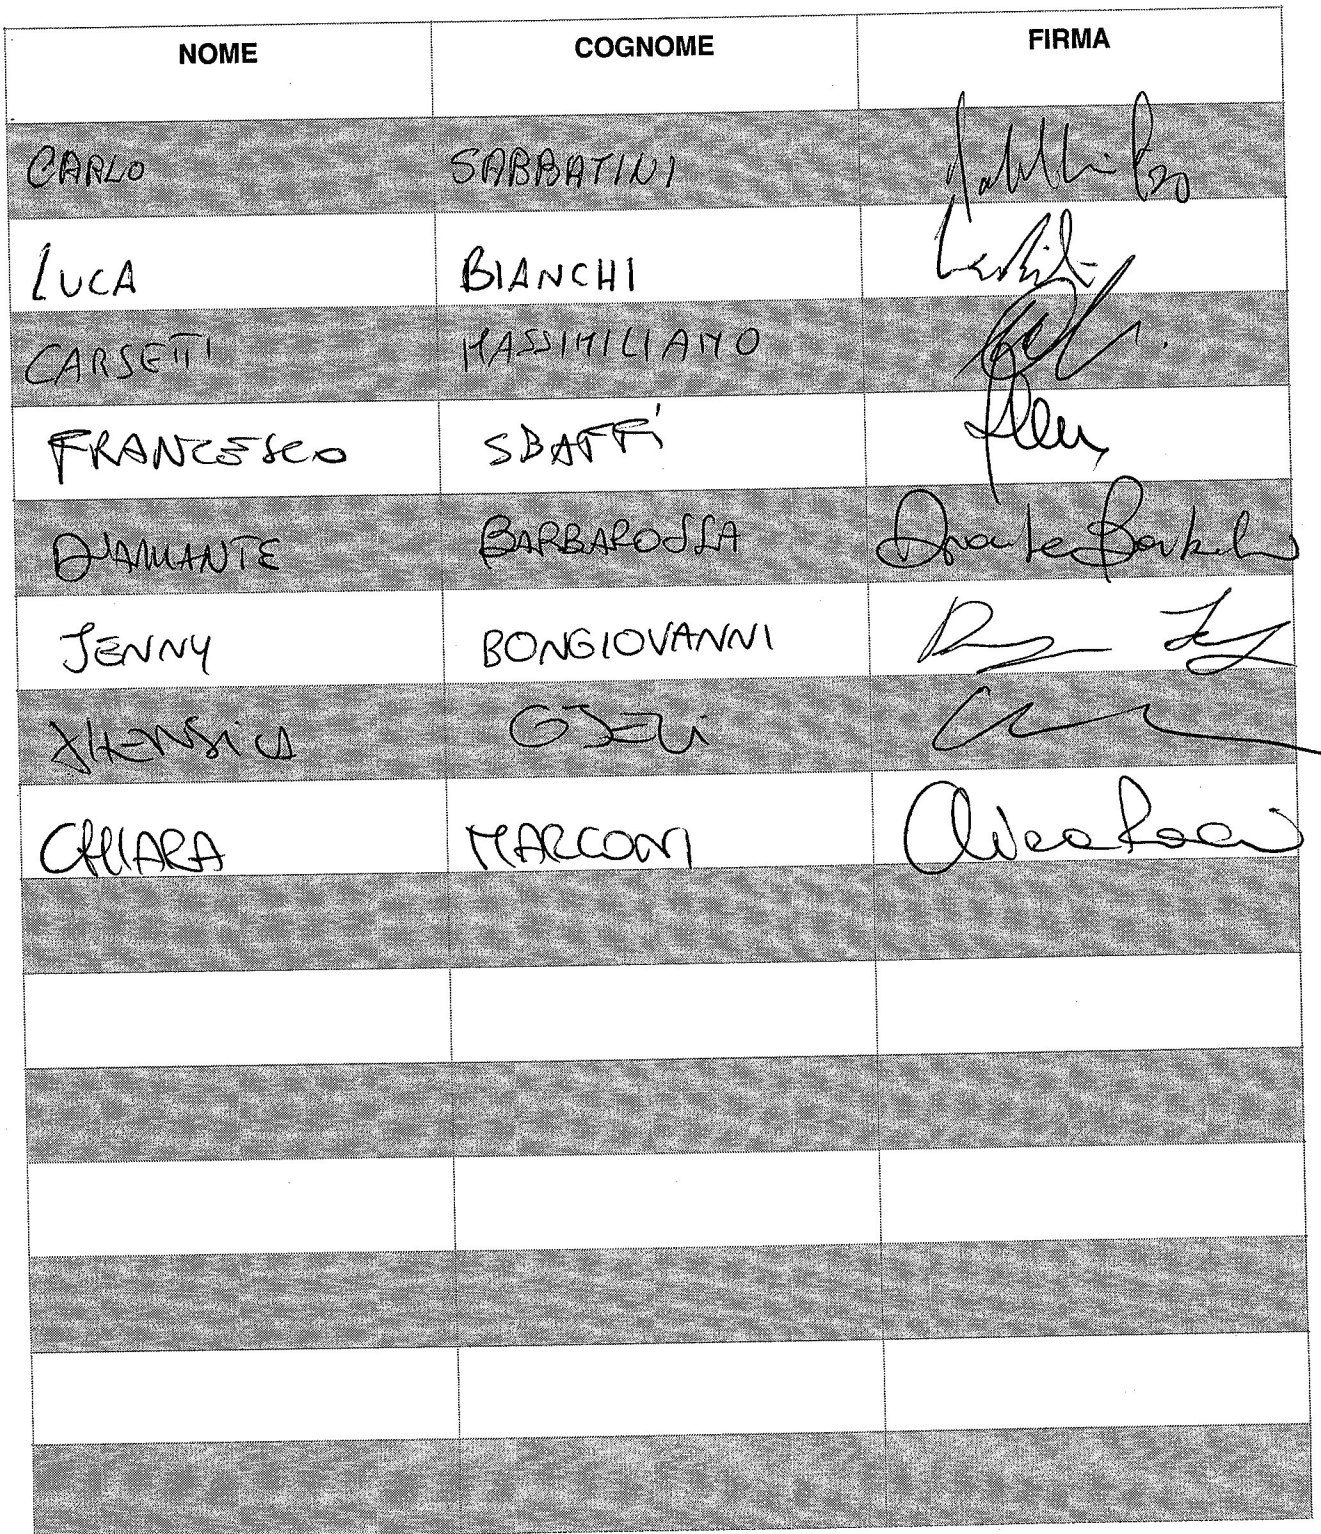 NOME COGNOME FIRMA
CARLO SABBATINI
LUCA BIANCHI
CARSETTI MASSIMILIANO
FRANCESCO SBAFFI
DIAMANTE BARBAROSSA
JENNY BONGIOVANNI
GJELI
CHIARA MARCONI